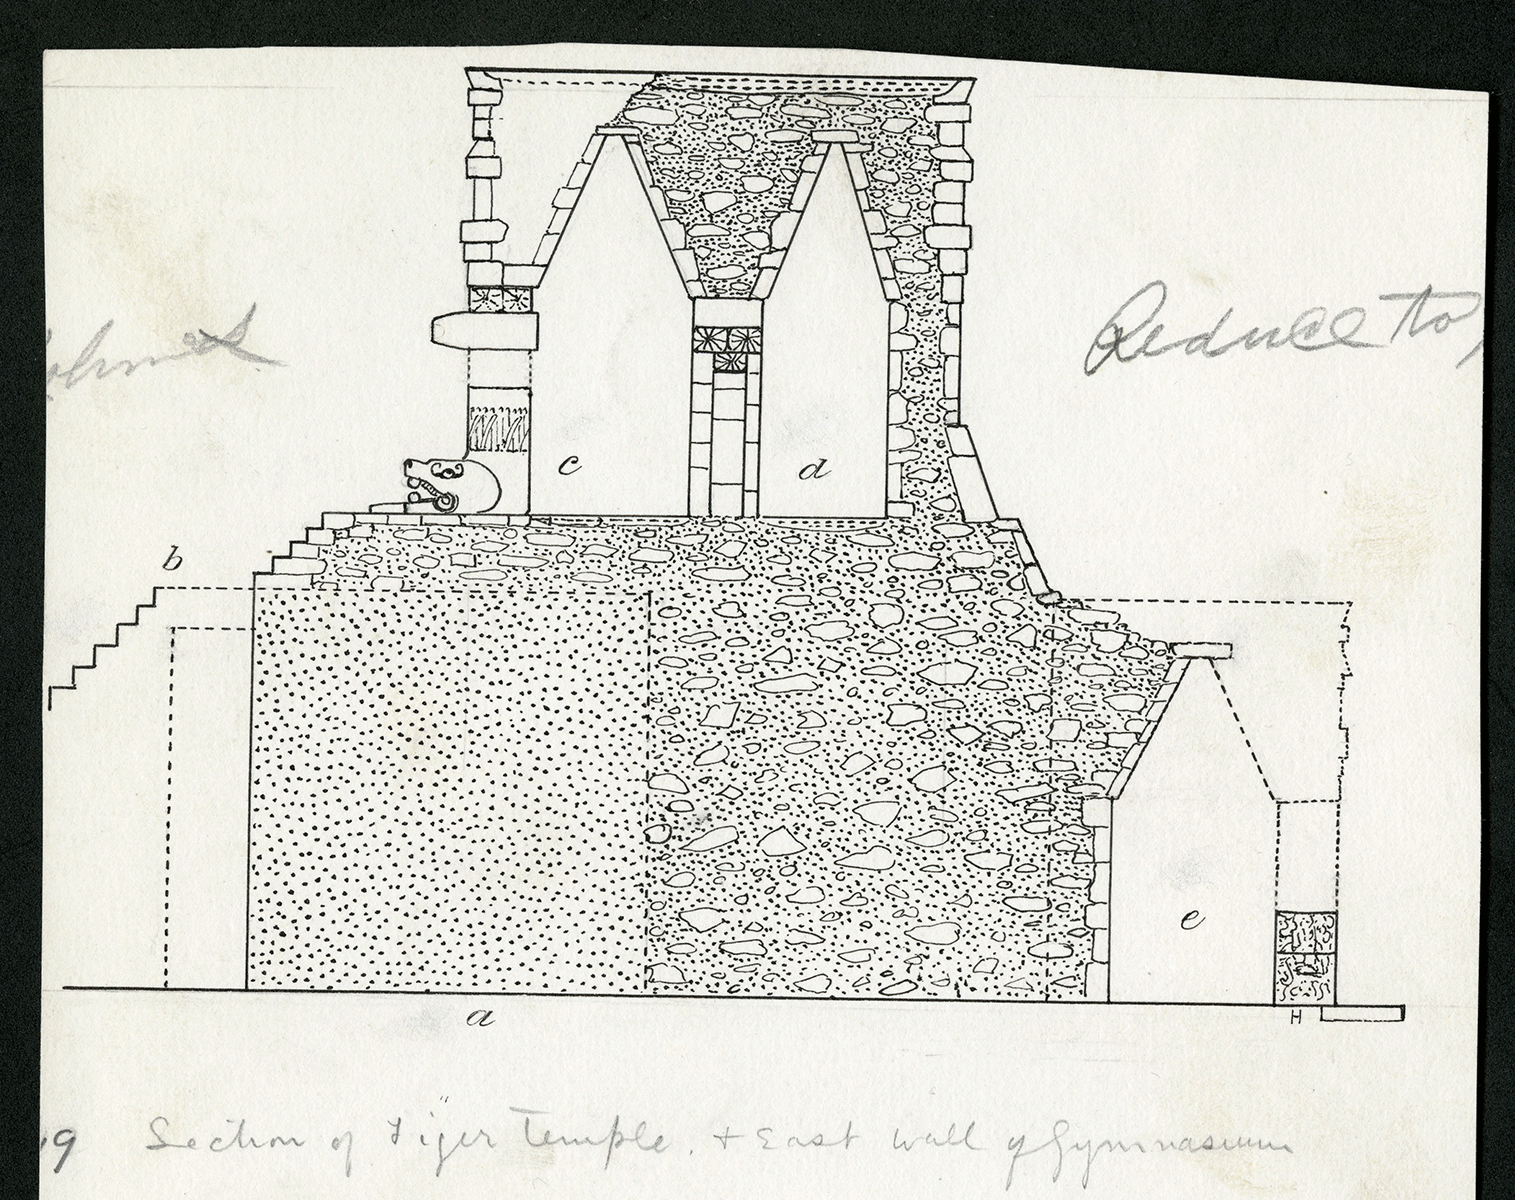 Reduce to
c
d
b
e
a
H
19 Section of Tiger Temple. + East wall of Gymnasium